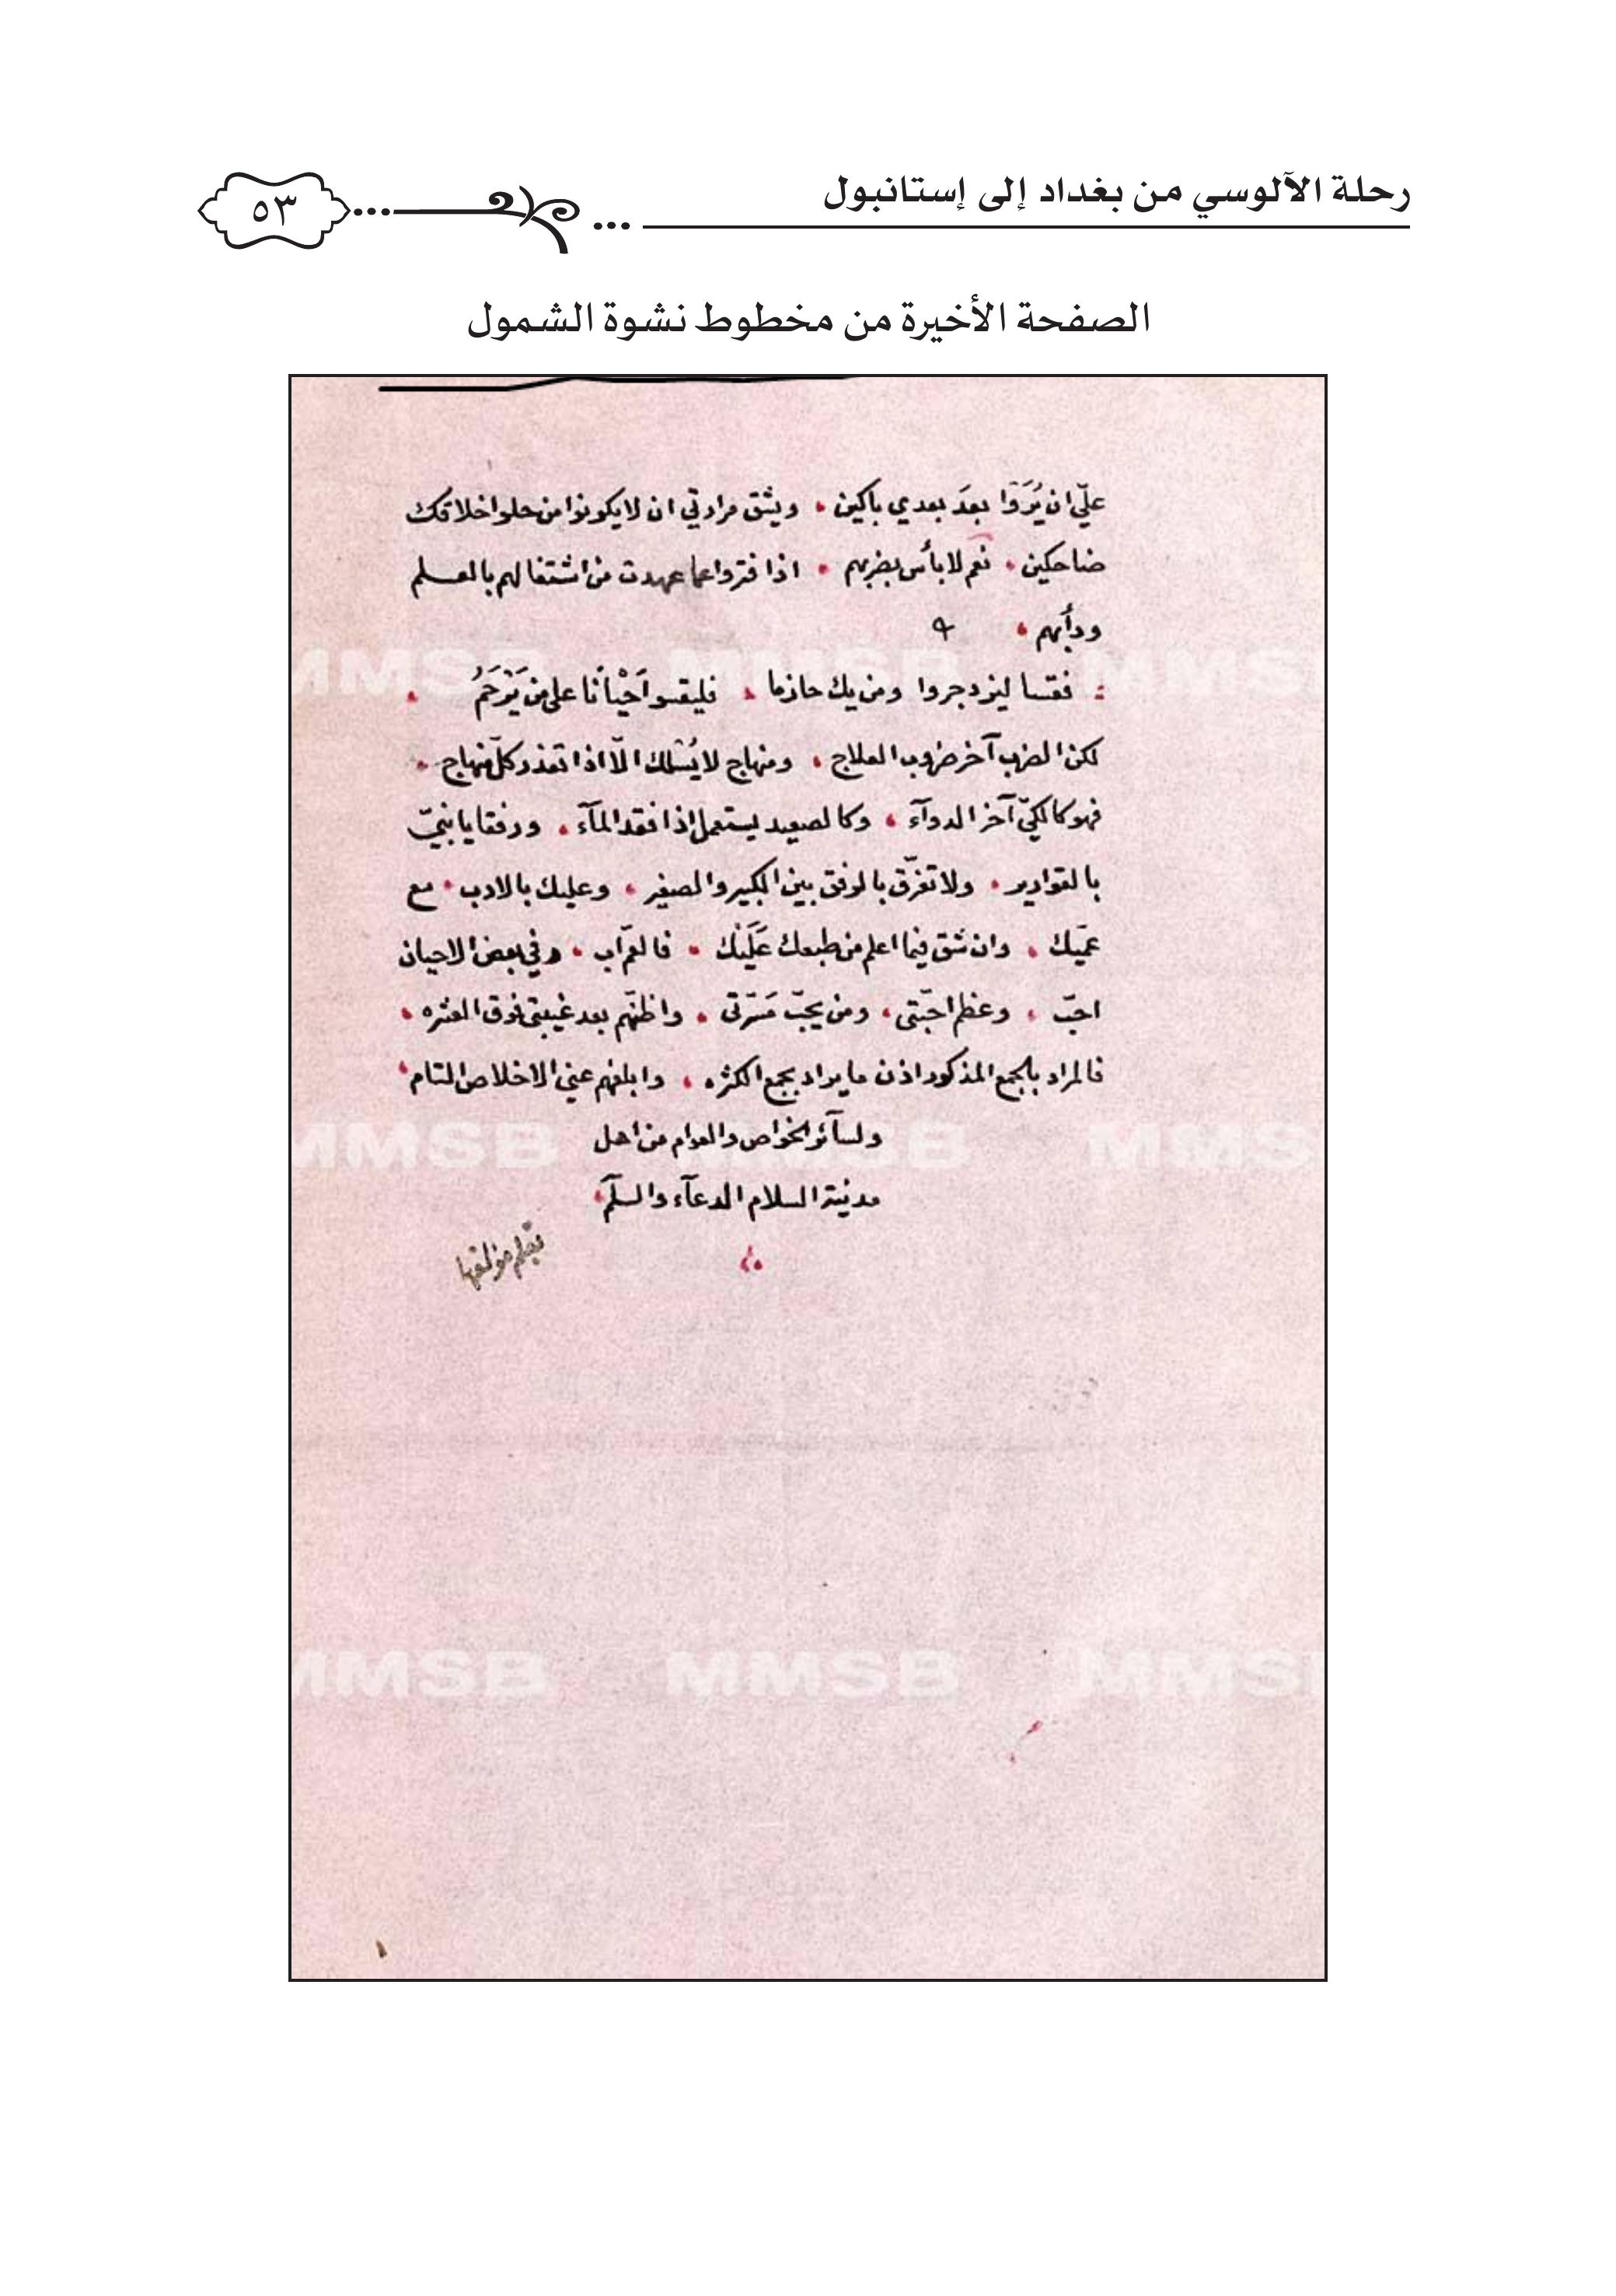 رحلة الآلوسي من بغداد إلى إستانبول
٥٣
الصفحة الأخيرة من مخطوط نشوة الشمول
عليّ ان يُرَوْا بعدَ بعدي باكين ، ويشق مرارتي ان لا يكونوا من حلو اخلاقك
ضاحكين ، نعم لا بأس بضربهم ، اذا فتروا عما عهدت من اشتغالهم بالعلم
ودأبهم ،
فقسا ليزدجروا ومن يك حازما ، فليقسو اَحْيانًا على من يَرْحَمُ ،
لكن الضرب آخر ضروب العلاج ، ومنهاج لا يُسْلك الّا اذا تعذر كلّ منهاج ،
فهو كالكيّ آخر الدوآء ، وكالصعيد يستعمل اذا فقد المآء ، ورفقا يا بنيّ
بالقوارير ، ولا تفرّق بالرفق بين الكبير والصغير ، وعليك بالادب ، مع
عمّيك ، وان شق فيما اعلم من طبعك عَلَيْك ، فالعمّ اب ، وفي بعض الاحيان
احبّ ، وعظم احبّتي ، ومن يحبّ مَسَرّتى ، واظنّهم بعد غيبتي فوق العشره ،
فالمراد بالجمع المذكور اذن ما يراد بجمع الكثره ، وابلغهم عني الاخلاص التام ،
ولسآئر الخواص والعوام من اهل
مدينة السلام الدعآء والسلٓم ،
بقلم مؤلفها
MMSB MMSB MMS
MMSB MMSB MMS
MMSB MMSB MMS